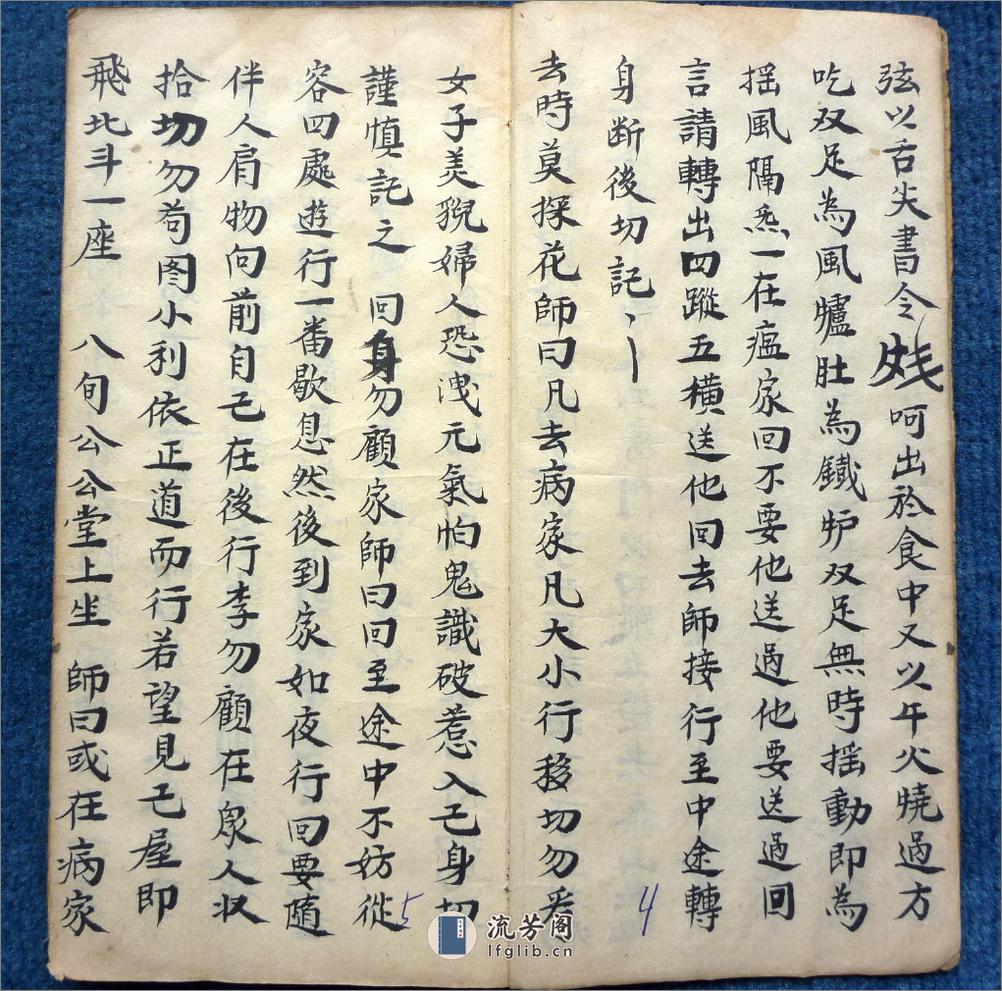 弦以舌尖書令 呵出於食中又以午火燒過方
吃双足為風爐肚為鐵炉双足無時揺動即為
揺風隔炁一在瘟家回不要他送過他要送過回
言請轉出四蹤五橫送他回去師接行至中途轉
身断後切記丶
去時莫採花師曰凡去病家凡大小行移切勿采
女子美貎婦人恐洩元氣怕鬼識破惹入己身切
謹慎記之 回身勿顧家師曰回至途中不妨從
容四處遊行一番歇息然後到家如夜行回要随
伴人肩物向前自己在後行李勿顧在眾人収
拾切勿苟图小利依正道而行若望見己屋即
飛北斗一座 八旬公公堂上坐 師曰或在病家
4
5
流芳阁
lfglib.cn